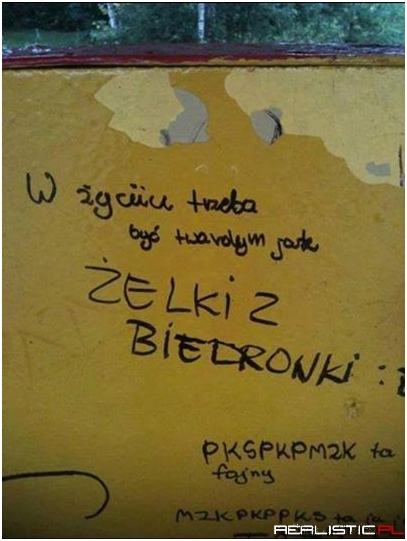 W życiu trzeba
być twardym jak
ŻELKI Z
BIEDRONKI :
PKSPKPMZK ta
fajny
MZKPKPPKS ta
REALISTIC.PL